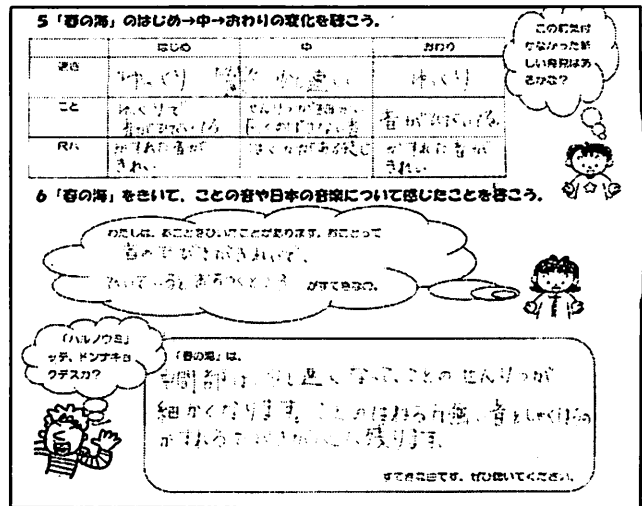 5 「春の海」のはじめ→中→おわりの変化を聴こう。
はじめ 中 おわり
速さ ゆっくり 少し速い ゆっくり
こと ゆっくりで せんりつが細かい
音がひびいてる 音がひびいてる
尺八 かすれた音が はくりょくがある感じ かすれた音が
きれい きれい
この前気付
かなかった新
しい発見はあ
るかな?
6 「春の海」をきいて、ことの音や日本の音楽について感じたことを書こう。
わたしは、おことをひいてことがあります。おことって
音の
ところ がすてきなの。
「ハルノウミ」
ッテ、ドンナキョ
クデスカ?
「春の海」は、
中間部は、少し速くなって、ことのせんりつが
細かくなります。ことのはねる 音としゃくはちの
かすれる 残ります。
すてきな曲です。ぜひ聴いてください。